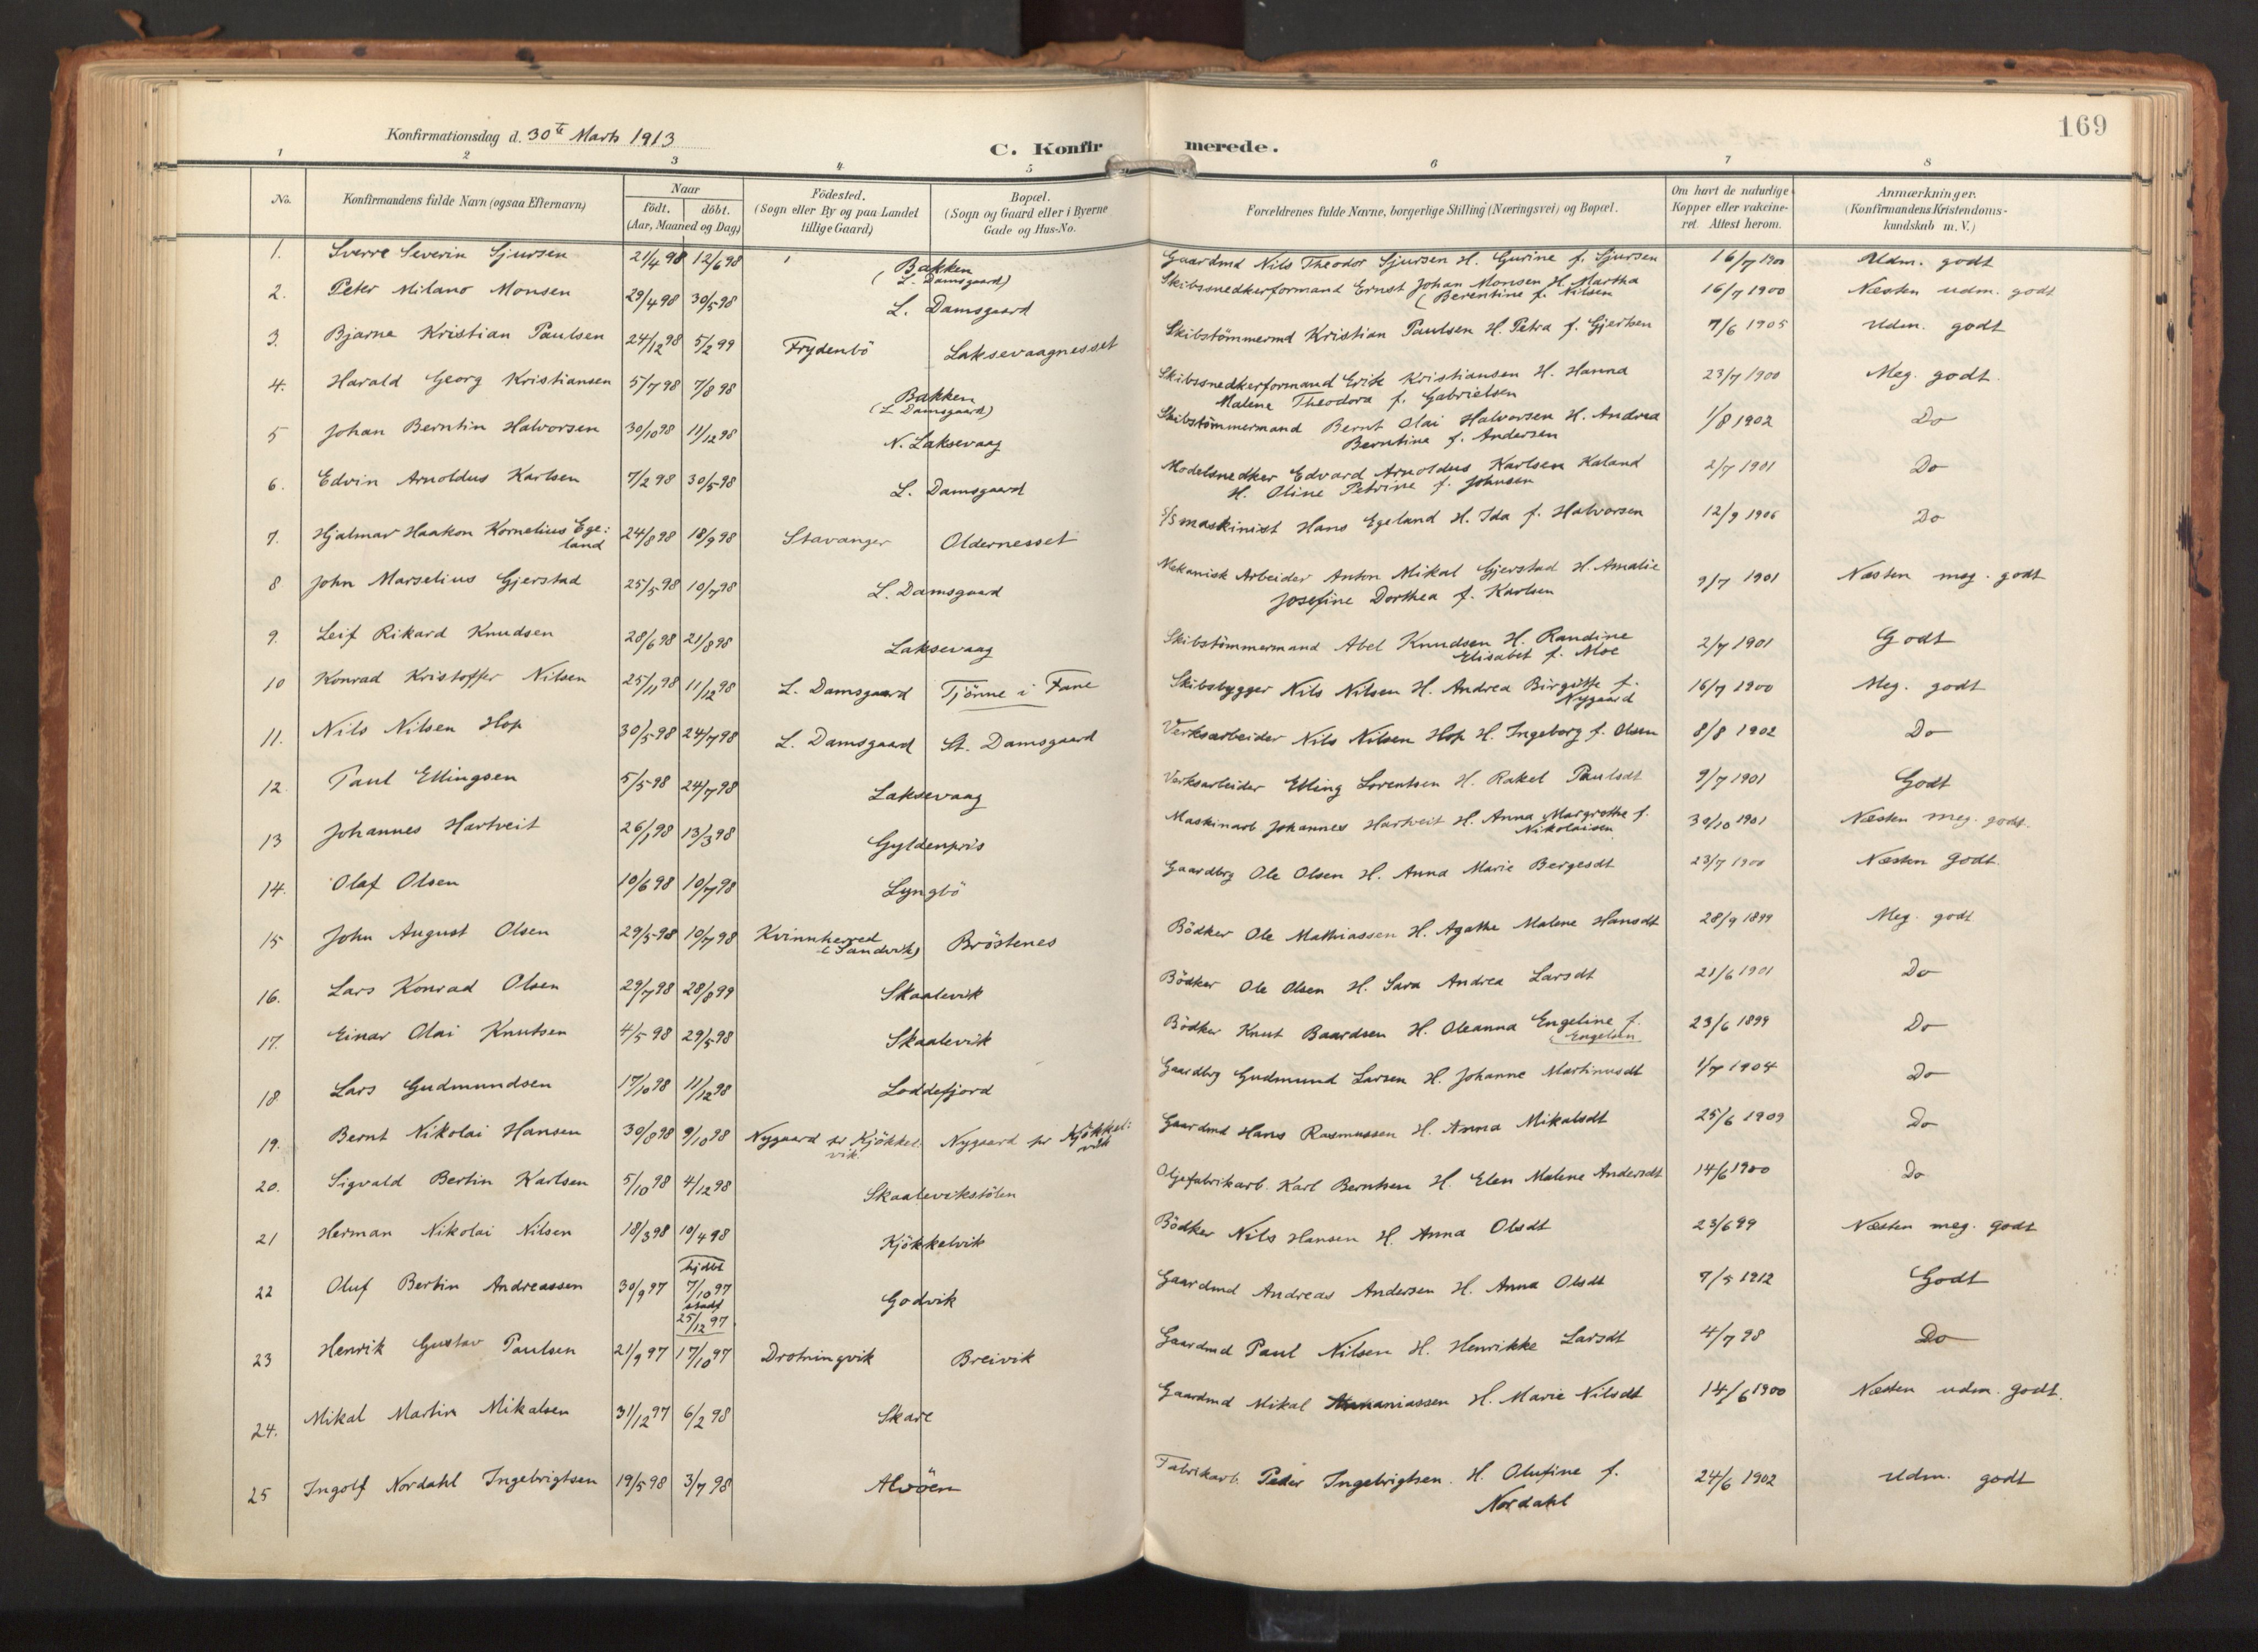 169
Konfirmationsdag d. 30te Marts 1913
C. Konfirmerede.
1 2 3 4 5 6 7 8
No. Konfirmandens fulde Navn (ogsaa Efternavn) Naar födt. döbt. (Aar, Maaned og Dag) Födested. (Sogn eller By og paa Landet tillige Gaard) Bopæl. (Sogn og Gaard eller i Byerne Gade og Hus-No. Forældrenes fulde Navne, borgerlige Stilling (Næringsvei) og Bopæl. Om havt de naturlige Kopper eller vakcineret. Attest herom. Anmærkninger. (Konfirmandens Kristendomskundskab m. V.)
1. Sverre Severin Sjursen 21/4 98 12/6 98 Bakken (L. Damsgaard) Gaardmd Nils Theodor Sjursen H. Gurine f. Sjursen 16/7 1900 Udm. godt
2. Peter Milano Monsen 29/4 98 30/5 98 L. Damsgaard Skibssnedkerformand Ernst Johan Monsen H. Martha (Berentine f. Nilsen 16/7 1900 Næsten udm. godt
3. Bjarne Kristian Paulsen 24/12 98 5/2 99 Frydenbö Laksevaagnesset Skibstömmermd Kristian Paulsen H. Petra f. Gjertsen 7/6 1905 Udm. godt
4. Harald Georg Kristiansen 5/7 98 7/8 98 Bakken (L. Damsgaard) Skibssnedkerformand Erik Kristiansen H. Hanna Malene Theodora f. Gabrielsen 23/7 1900 Meg. godt.
5 Johan Berntin Halvorsen 30/10 98 11/12 98 N. Laksevaag Skibstömmermand Bernt Olai Halvorsen H. Andrea Berntine f. Andersen 1/8 1902 Do
6. Edvin Arnoldus Karlsen 7/2 98 30/5 98 L. Damsgaard Modelsnedker Edvard Arnoldus Karlsen Kaland H. Oline Petrine f. Johnsen 2/7 1901 Do
7. Hjalmar Haakon Kornelius Egeland 24/8 98 18/9 98 Stavanger Oldernesset s/s maskinist Hans Egeland H. Ida f. Halvorsen 12/9 1906 Do
8 John Marselius Gjerstad 25/5 98 10/7 98 L. Damsgaard Mekanisk Arbeider Anton Mikal Gjerstad H. Amalie Josefine Dorthea f. Karlsen 9/7 1901 Næsten meg. godt
9. Leif Rikard Knudsen 28/6 98 21/8 98 Laksevaag Skibstömmermand Abel Knudsen H. Randine Elisabet f. Moe 2/7 1901 Godt
10 Konrad Kristoffer Nilsen 25/11 98 11/12 98 L. Damsgaard Tjönne i Fane Skibsbygger Nils Nilsen H. Andrea Birgitte f. Nygaard 16/7 1900 Meg. godt
11. Nils Nilsen Hop 30/5 98 24/7 98 L. Damsgaard St. Damsgaard Verksarbeider Nils Nilsen Hop H. Ingeborg f. Olsen 8/8 1902 Do
12. Paul Ellingsen 5/5 98 24/7 98 Laksevaag Verksarbeider Elling Lorentsen H. Rakel Paulsdt 9/7 1901 Godt
13 Johannes Hartveit 26/1 98 13/3 98 Gyldenpris Maskinarb Johannes Hartveit H. Anna Margrethe f. Nikolaisen 30/10 1901 Næsten meg. godt.
14. Olaf Olsen 10/6 98 10/7 98 Lyngbö Gaardbrg Ole Olsen H. Anna Marie Bergesdt 23/7 1900 Næsten godt.
15 John August Olsen 29/5 98 10/7 98 Kvinnherred (Sandvik) Bröstenes Bödker Ole Mathiassen H. Agathe Malene Hansdt 28/9 1899 Meg. godt
16. Lars Konrad Olsen 29/7 98 28/8 99 Skaalevik Bödker Ole Olsen H. Sara Andrea Larsdt 21/6 1901 Do
17. Einar Olai Knutsen 4/5 98 29/5 98 Skaalevik Bödker Knut Baardsen H. Oleanna Engeline f. (Engelsen 23/6 1899 Do
18. Lars Gudmundsen 17/10 98 11/12 98 Loddefjord Gaardbrg Gudmund Larsen H. Johanne Martinusdt 1/7 1904 Do
19. Bernt Nikolai Hansen 30/8 98 9/10 98 Nygaard pr Kjökkelvik Nygaard pr Kjökkel:vik Gaardmd Hans Rasmussen H. Anna Mikalsdt 25/6 1909 Do
20. Sigvald Bertin Karlsen 5/10 98 4/12 98 Skaalevikstölen Oljefabrikarb. Karl Berntsen H. Elen Malene Andersdt 14/6 1900 Do
21 Herman Nikolai Nilsen 18/3 98 10/4 98 Kjökkelvik Bödker Nils Hansen H. Anna Olsdt 23/6 99 Næsten meg. godt
22 Oluf Bertin Andreassen 30/9 97 hjdbt 7/10 97 stadf 25/12 97 Godvik Gaardmd Andreas Andersen H. Anna Olsdt 7/5 1912 Godt
23 Henrik Gustav Paulsen 21/9 97 17/10 97 Drotningvik Breivik Gaardmd Paul Nilsen H. Henrikke Larsdt 4/7 98 Do
24. Mikal Martin Mikalsen 31/12 97 6/2 98 Skare Gaardmd Mikal H. Marie Nilsdt 14/6 1900 Næsten udm. godt.
25 Ingolf Nordahl Ingebrigtsen 19/5 98 3/7 98 Alvöen Fabrikarb. Peder Ingebrigtsen. H. Olufine f. Nordahl 24/6 1902 Udm. godt